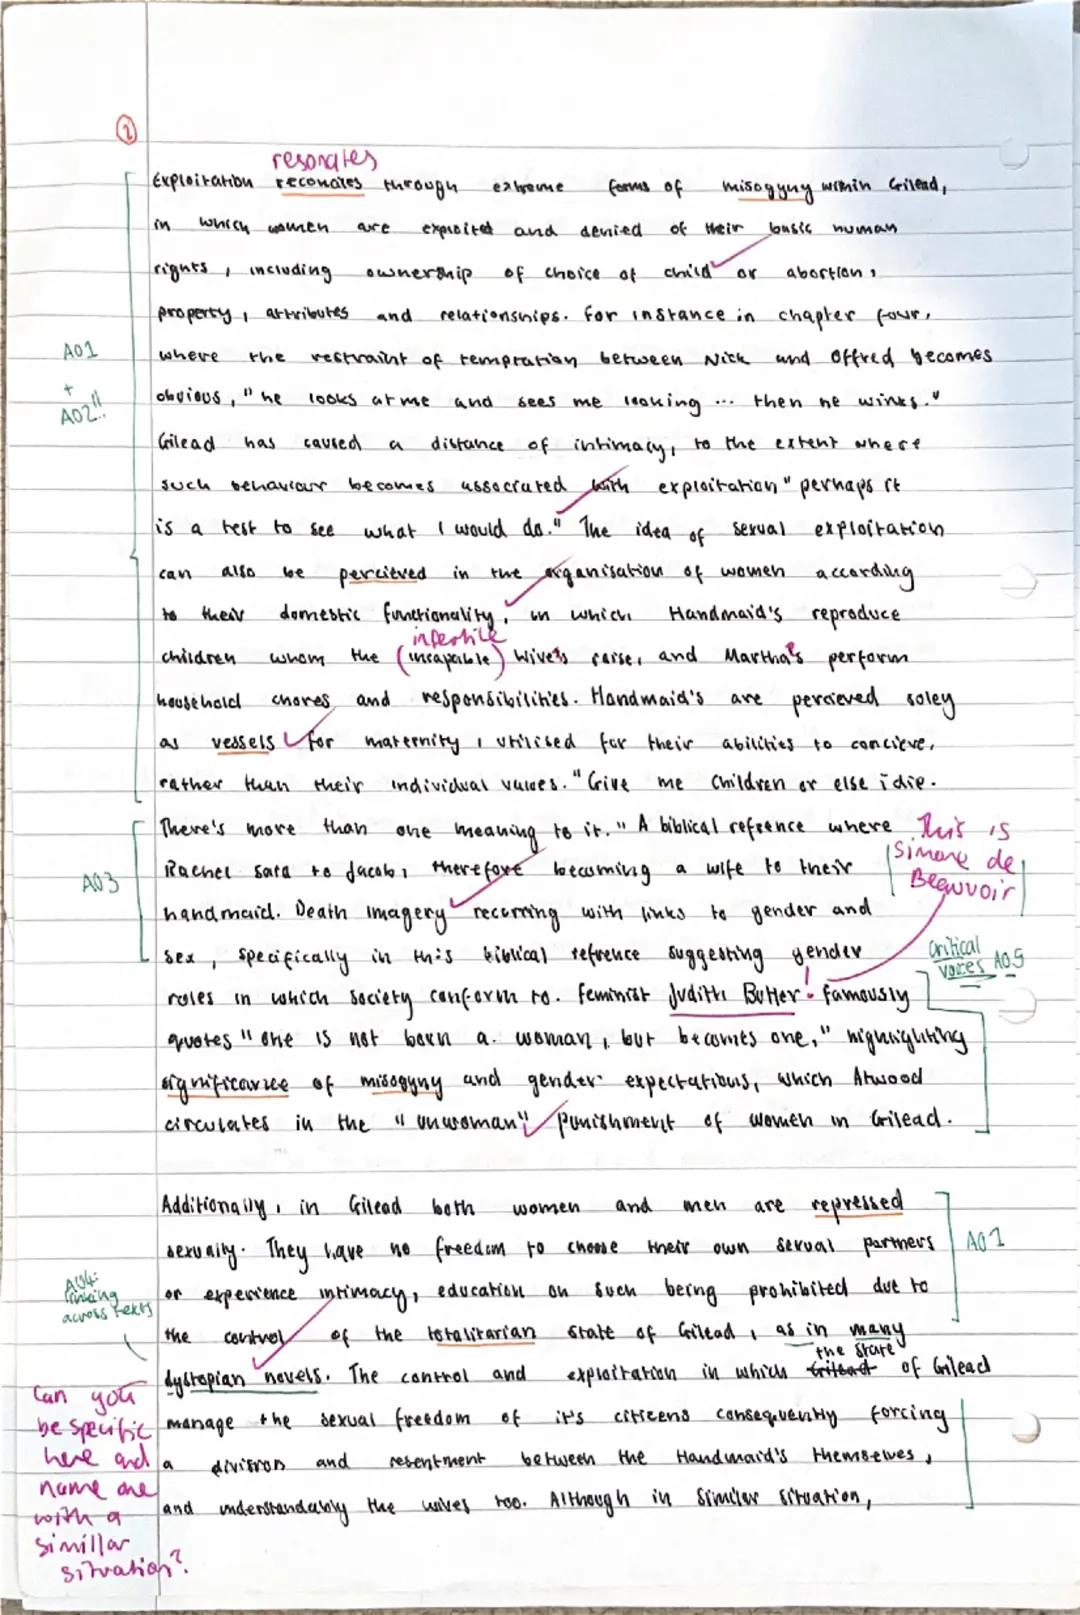 2
resonates
Exploitation reconates through extreme forms of misogyny within Gilead,
in which women are exploited and denied of their basic human
rights, including ownership of choice of child or abortion,
property, attributes and relationships. For instance in chapter four,
AO1
where the restraint of temptation between Nick and Offred becomes
+
AO2!!
obvious, "he looks at me and sees me looking ... then he winks."
Gilead has caused a distance of intimacy, to the extent where
such behaviour becomes associated with exploitation "perhaps it
is a test to see what I would do." The idea of sexual exploitation
can also be percieved in the organisation of women according
to their domestic functionality, in which Handmaid's reproduce
infertile
children whom the (incapable) Wive's raise, and Martha's perform
household chores and responsibilities. Handmaid's are percieved soley
as vessels for maternity, utilised for their abilities to concieve,
rather than their individual values. "Give me Children or else i die.
There's more than one meaning to it." A biblical refrence where
This is
Simone de
Beauvoir
AO3
Rachel said to Jacob, therefore becoming a wife to their
handmaid. Death imagery recurring with links to gender and
sex, specifically in this biblical refrence suggesting gender
critical
voices AO5
roles in which society conform to. Feminist Judith Butler! famously
quotes "one is not born a woman, but becomes one," highlighting
significance of misogyny and gender expectations, which Atwood
circulates in the "unwoman" punishment of women in Gilead.
Additionally, in Gilead both women and men are repressed
sexually. They have no freedom to choose their own sexual partners
AO1
AO4:
linking
across texts
or experience intimacy, education on such being prohibited due to
the control of the totalitarian state of Gilead, as in many
the state
dystopian novels. The control and exploitation in which Gilead of Gilead
Can you
be specific
here and
name one
with a
simillar
situation?
manage the sexual freedom of it's citicens consequently forcing
a division and resentment between the Handmaid's themselves,
and understandably the wives too. Although in similar situation,